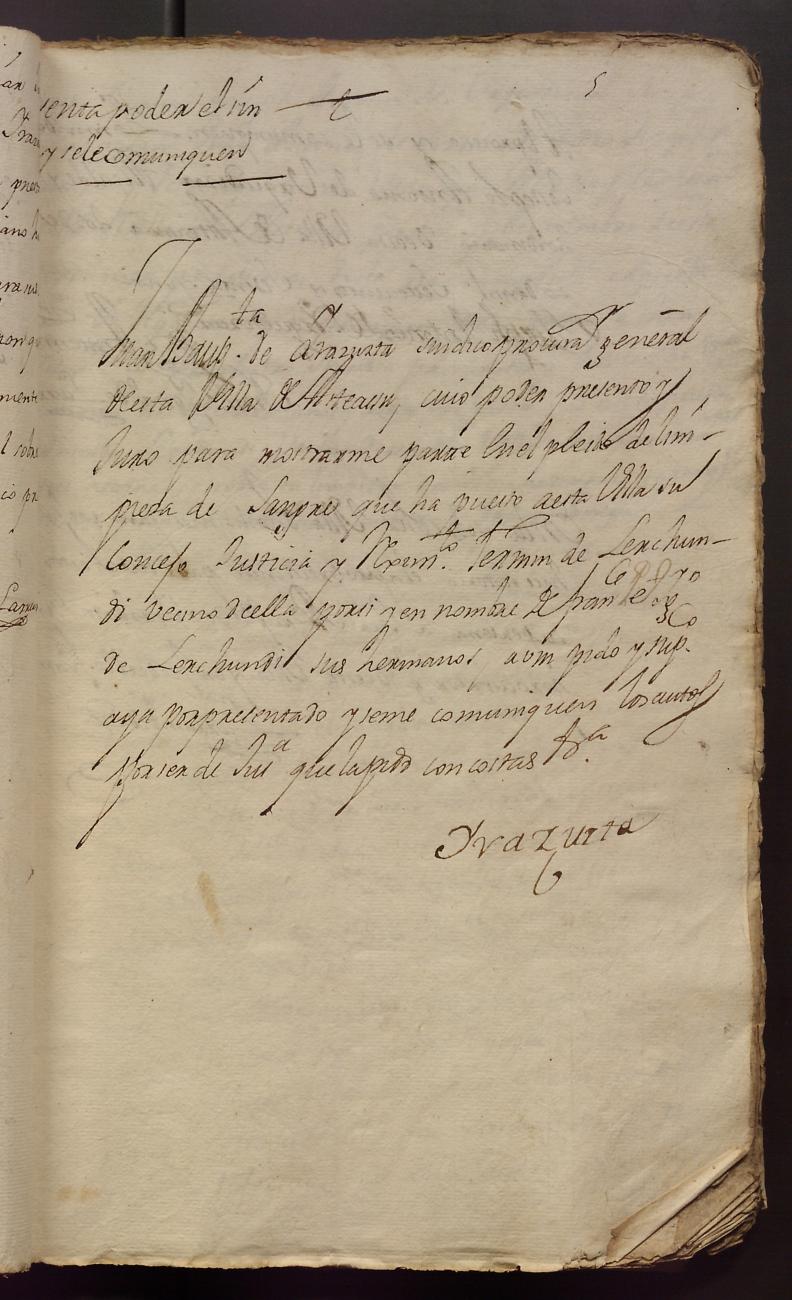 enta poder el sin
y sele comuniquen
5
Juan Bauptta. de Yrazusta sindico procurador general
desta Villa de Asteasu, cuio poder presento y
Juro para mostrarme parte en el pleito de lim-
pieza de Sangre que ha puesto aesta Villa su
Concejo Justicia y Reximto. Fermin de Lerchun-
di vecino de ella por si y en nombre de Juan
de Lerchundi sus hermanos a vm pido y supco.
aya por presentado y seme comuniquen los autos
por ser de Jusa que la pido con costas &a.
Yrazusta